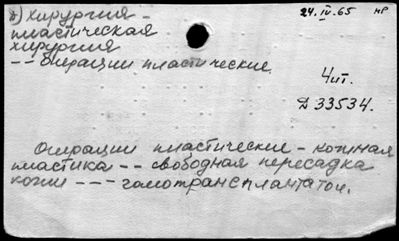 б) хирургия -
пластическая
хирургия
-- операции пластические.
24.IV.65 нр
Чит.
Д 33534.
Операции пластические - кожная
пластика -- свободная пересадка
кожи --- гомотрансплантатом.